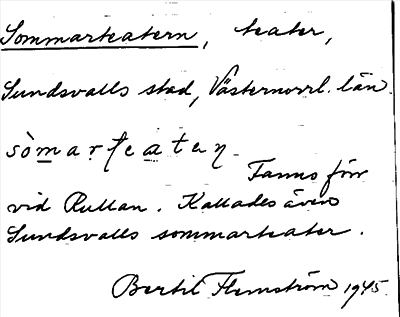 Sommarteatern, teater,
Sundsvalls stad, Västernorrl. län.
sòmarteateṇ
Fanns förr
vid Rullan. Kallades även
Sundsvalls sommarteater.
Bertil Flemström 1945.